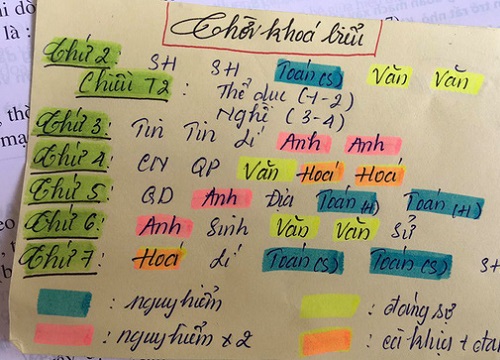 Thời khoá biểu
Thứ 2: SH SH Toán(S) Văn Văn
Chiều T2: Thể dục (1-2)
Nghề (3-4)
Thứ 3: Tin Tin Lí Anh Anh
Thứ 4: CN QP Văn Hoá Hoá
Thứ 5: QD Anh Địa Toán(H) Toán(H)
Thứ 6: Anh Sinh Văn Văn Sử
Thứ 7: Hoá Lí Toán(S) Toán(S) SH
: nguy hiểm : đáng sợ
: nguy hiểm x2